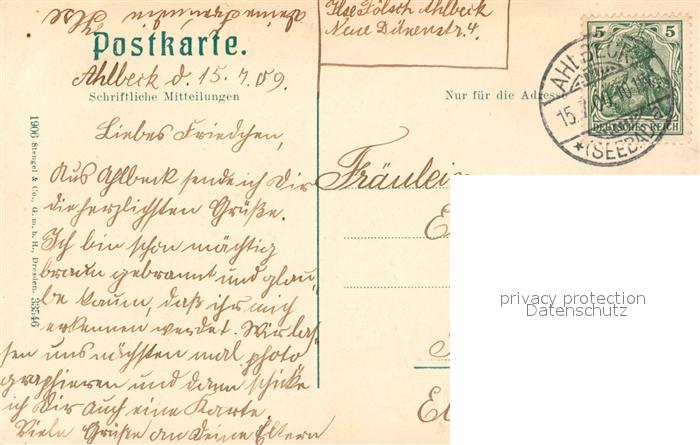 Deine Freundin Ilse
Postkarte.
Ahlbeck d. 15.7.09.
Schriftliche Mitteilungen
Liebes Friedchen,
Aus Ahlbeck sende ich Dir
die herzlichsten Grüße.
Ich bin schon mächtig
braun gebrannt und glau-
be kaum, daß ihr mich
erkennen werdet. Wir las-
sen uns nächsten mal photo
graphieren und dann schicke
ich Dir auch eine Karte.
Viele Grüße an Deine Eltern
1906 Stengel & Co., G. m. b. H., Dresden. 33546
Ilse Fölsch Ahlbeck
Neue Dünenstr. 4.
Nur für die Adresse
Fräulein
E
El
5 5
DEUTSCHES REICH
AHLBECK
15.7.09
*(SEEBAD)
privacy protection
Datenschutz